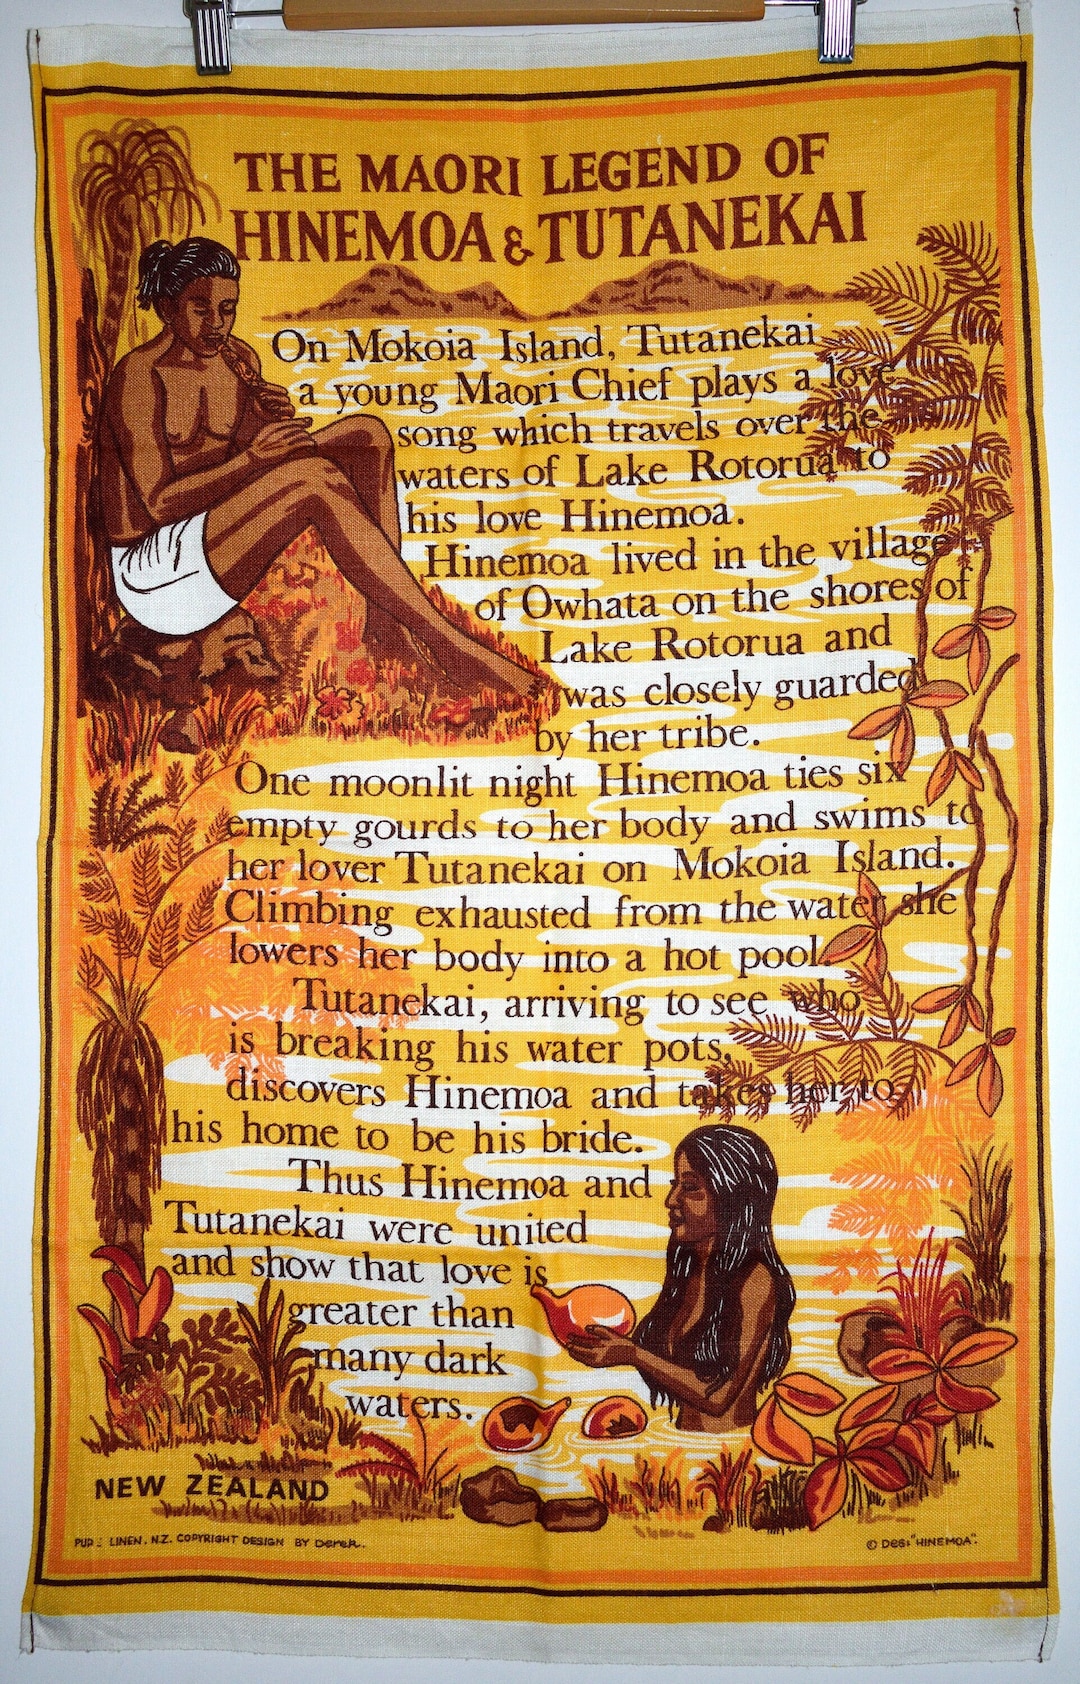 THE MAORI LEGEND OF
HINEMOA & TUTANEKAI
On Mokoia Island, Tutanekai
a young Maori Chief plays a love
song which travels over the
waters of Lake Rotorua to
his love Hinemoa.
Hinemoa lived in the village
of Owhata on the shores of
Lake Rotorua and
was closely guarded
by her tribe.
One moonlit night Hinemoa ties six
empty gourds to her body and swims to
her lover Tutanekai on Mokoia Island.
Climbing exhausted from the water she
lowers her body into a hot pool.
Tutanekai, arriving to see who
is breaking his water pots,
discovers Hinemoa and takes her to
his home to be his bride.
Thus Hinemoa and
Tutanekai were united
and show that love is
greater than
many dark
waters.
NEW ZEALAND
LINEN. N.Z. COPYRIGHT DESIGN BY Derek.
© "HINEMOA".